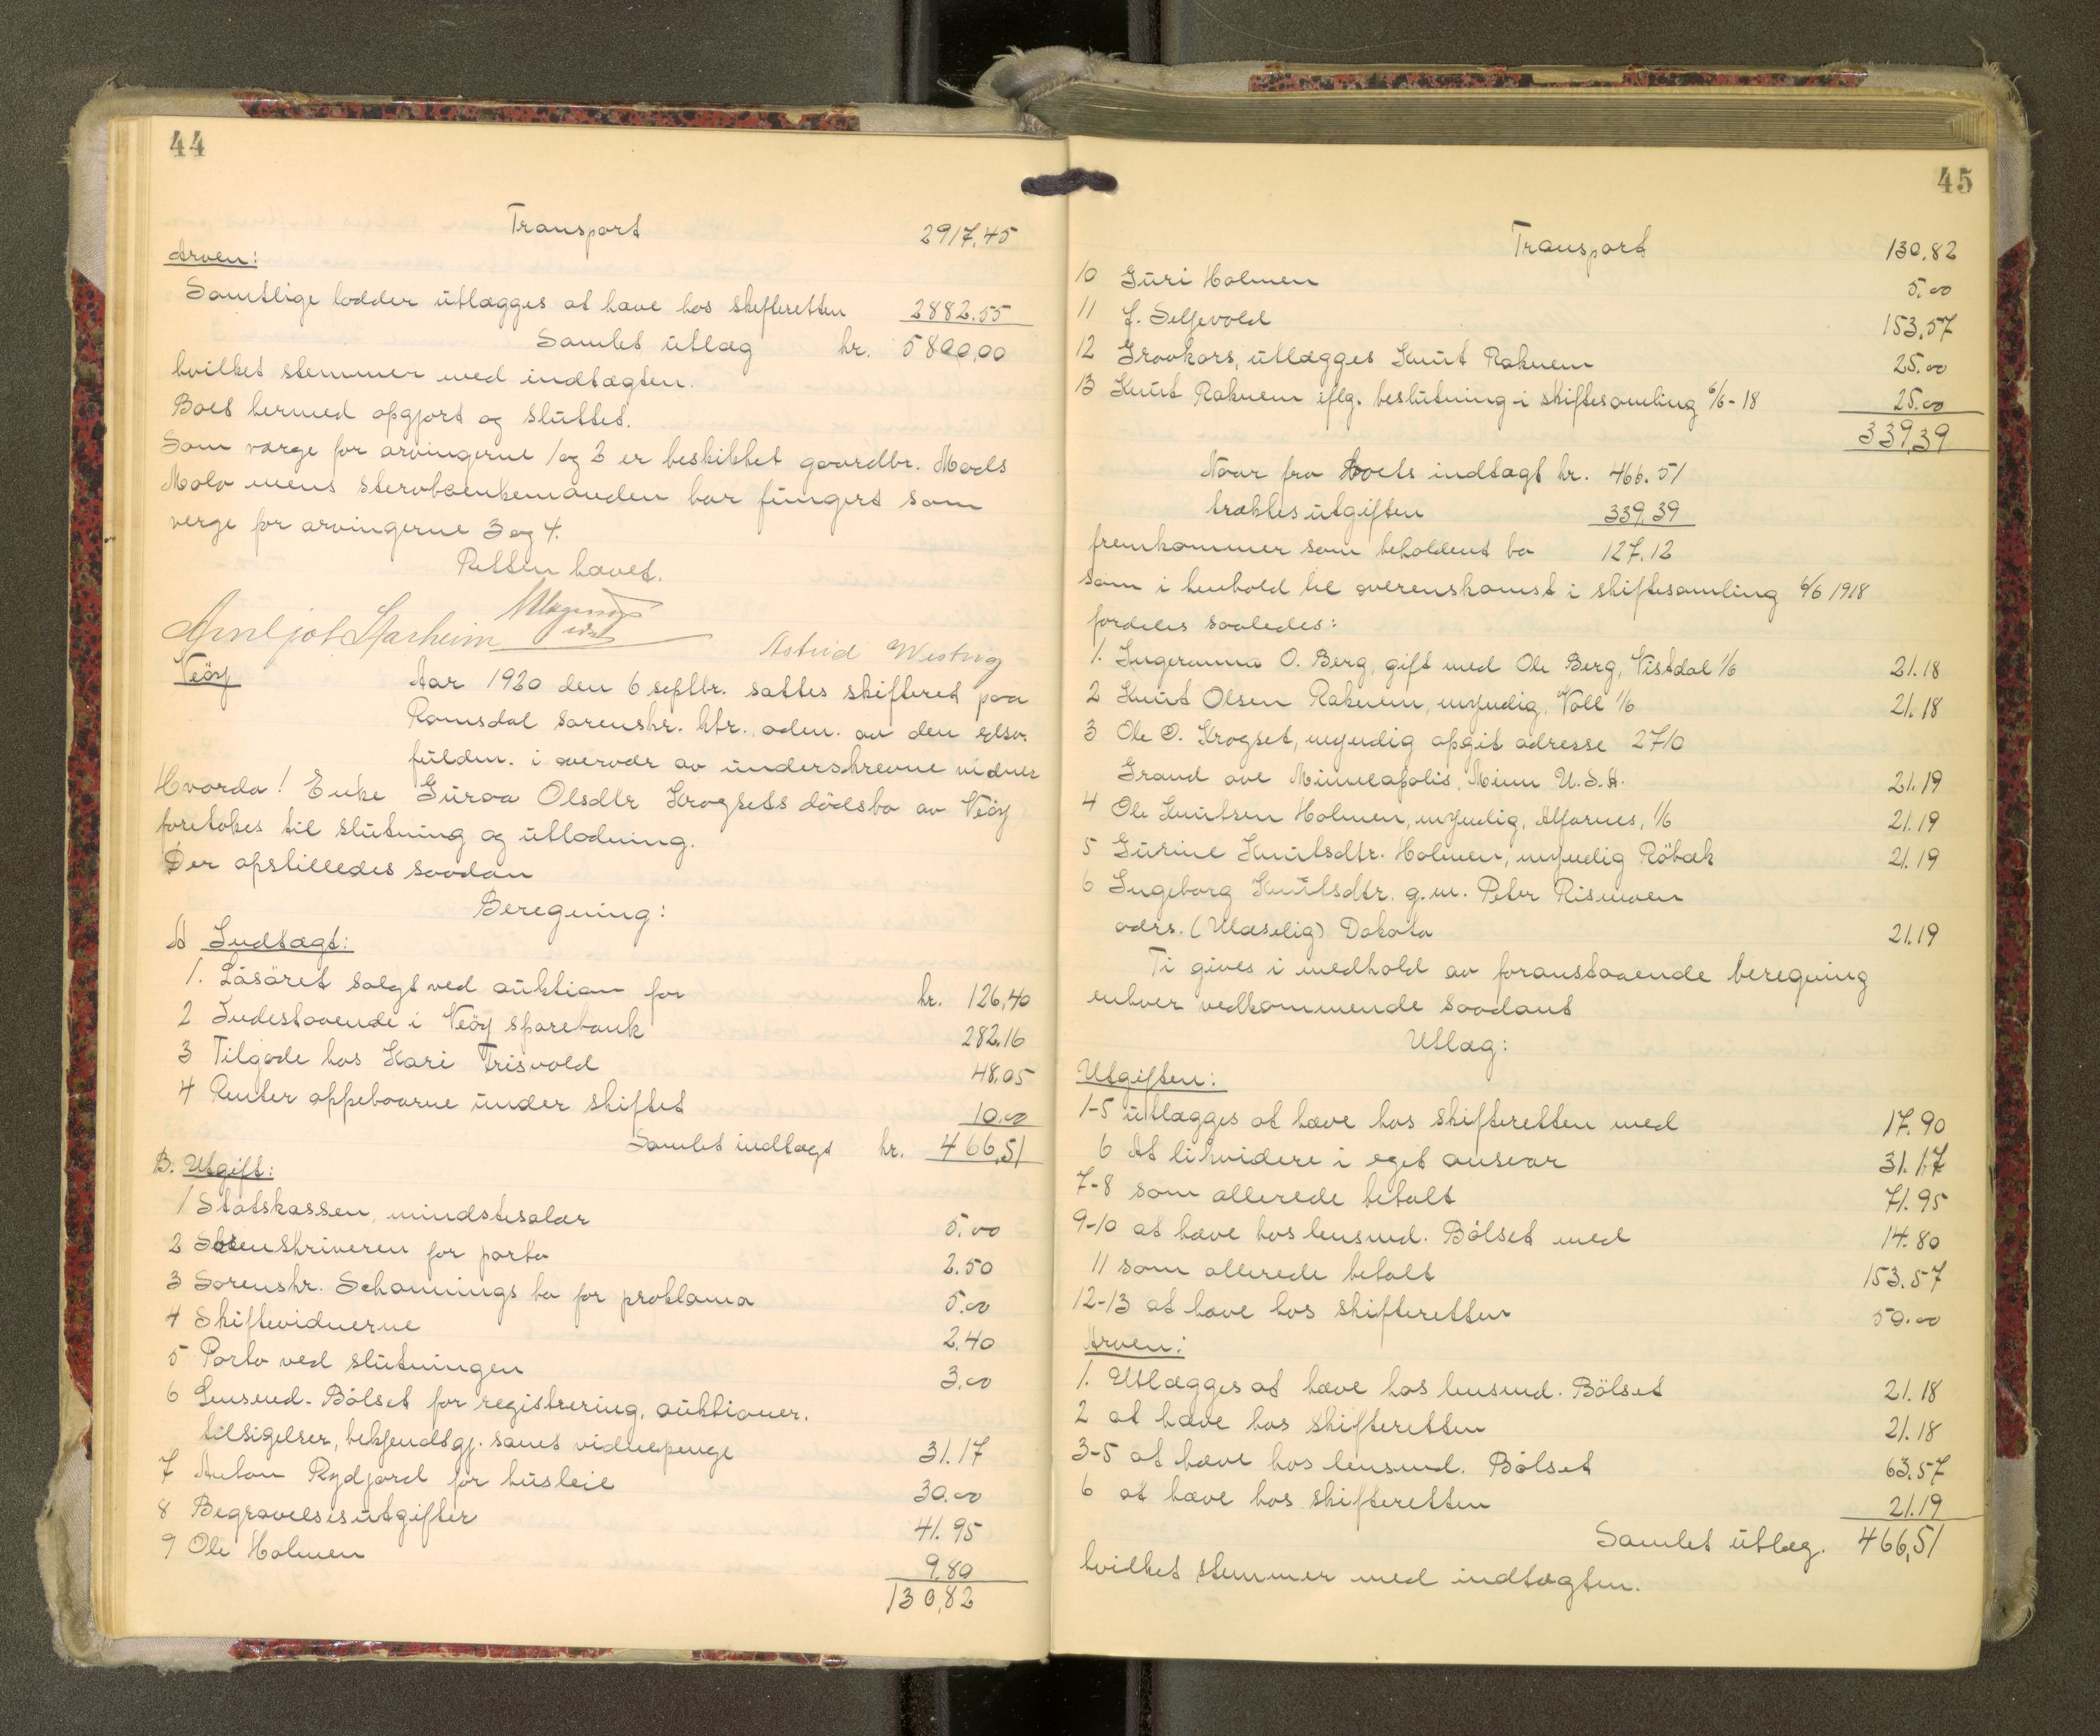 44
Transport 2917,45
Arven:
Samtlige lodder utlægges at have hos skifteretten 2882.55
Samlet utlæg kr. 5800,00
hvilket stemmer med indtægten.
Boet hermed opgjort og sluttet.
Som værge for arvingerne 1 og 2 er beskikket gaardbr. Mads
Malo mens stervboenkemanden har fungert som
verge for arvingerne 3 og 4.
Retten hævet.
Arneljot Sparheim Astrid Westvig
Veöy
Aar 1920 den 6 septbr. sattes skifteret paa
Romsdal sorenskr. ktr., adm. av den edsv.
fuldm. i overvær av underskrevne vidner
Hvorda! Enke Guroa Olsdtr Krogsets dödsbo av Veöy
foretokes til slutning og utlodning.
Der opstilledes saadan
Beregning:
A Indtægt:
1. Lösöret solgt ved auktion for kr. 126,40
2 Indestaaende i Veöy sparebank 282.16
3 Tilgode hos Kari Trisvold 48,05
4 Renter oppebaarne under skiftet 10.00
Samlet indtægt kr. 466,51
B. Utgift:
1 Statskassen, mindstesalær 5.00
2 Sorenskriveren for porto 2.50
3 Sorenskr. Schannings bo for proklama 5.00
4 Skiftevidnerne 2.40
5 Porto ved slutningen 3.00
6 Lensmd. Bölset for registrering, auktioner.
tilsigelser, bekjendtgj. samt vidnepenge 31.17
7 Anton Rydjord for husleie 30.00
8 Begravelsesutgifter 41.95
9 Ole Holmen 9.80
130,82
45
Transport 130,82
10 Guri Holmen 5.00
11 J. Seljevold 153,57
12 Gravkors, utlægges Knut Raknem 25.00
13 Knut Raknem iflg. beslutning i skiftesamling 6/6-18 25.00
339,39
Naar fra boets indtægt kr. 466.51
trækkes utgiften 339.39
fremkommer som beholdent bo 127.12
som i henhold til overenskomst i skiftesamling 6/6 1918
fordeles saaledes:
1. Ingeranna O. Berg, gift med Ole Berg, Vistdal 1/6 21.18
2 Knut Olsen Raknem, myndig, Voll 1/6 21.18
3 Ole O. Krogset, myndig opgit adresse 2710
Grand ave Minneapolis, Minn U.S.A. 21.19
4 Ole Knutsen Holmen, myndig, Alfarnes, 1/6 21.19
5 Gurine Knutsdtr. Holmen, myndig Röbæk 21.19
6 Ingeborg Knutsdtr. g.m. Peter Rismoen
adrs. (Ulæselig) Dakota 21.19
Ti gives i medhold av foranstaaende beregning
enhver vedkommende saadant
Utlæg:
Utgiften:
1-5 utlægges at hæve hos skifteretten med 17.90
6 At likvidere i eget ansvar 31.17
7-8 som allerede betalt 71.95
9-10 at hæve hos lensmd. Bölset med 14.80
11 som allerede betalt 153.57
12-13 at hæve hos skifteretten 50.00
Arven:
1. Utlægges at hæve hos lensmd. Bölset 21.18
2 at hæve hos skifteretten 21.18
3-5 at hæve hos lensmd. Bölset 63.57
6 at hæve hos skifteretten 21.19
Samlet utlæg. 466,51
hvilket stemmer med indtægten.